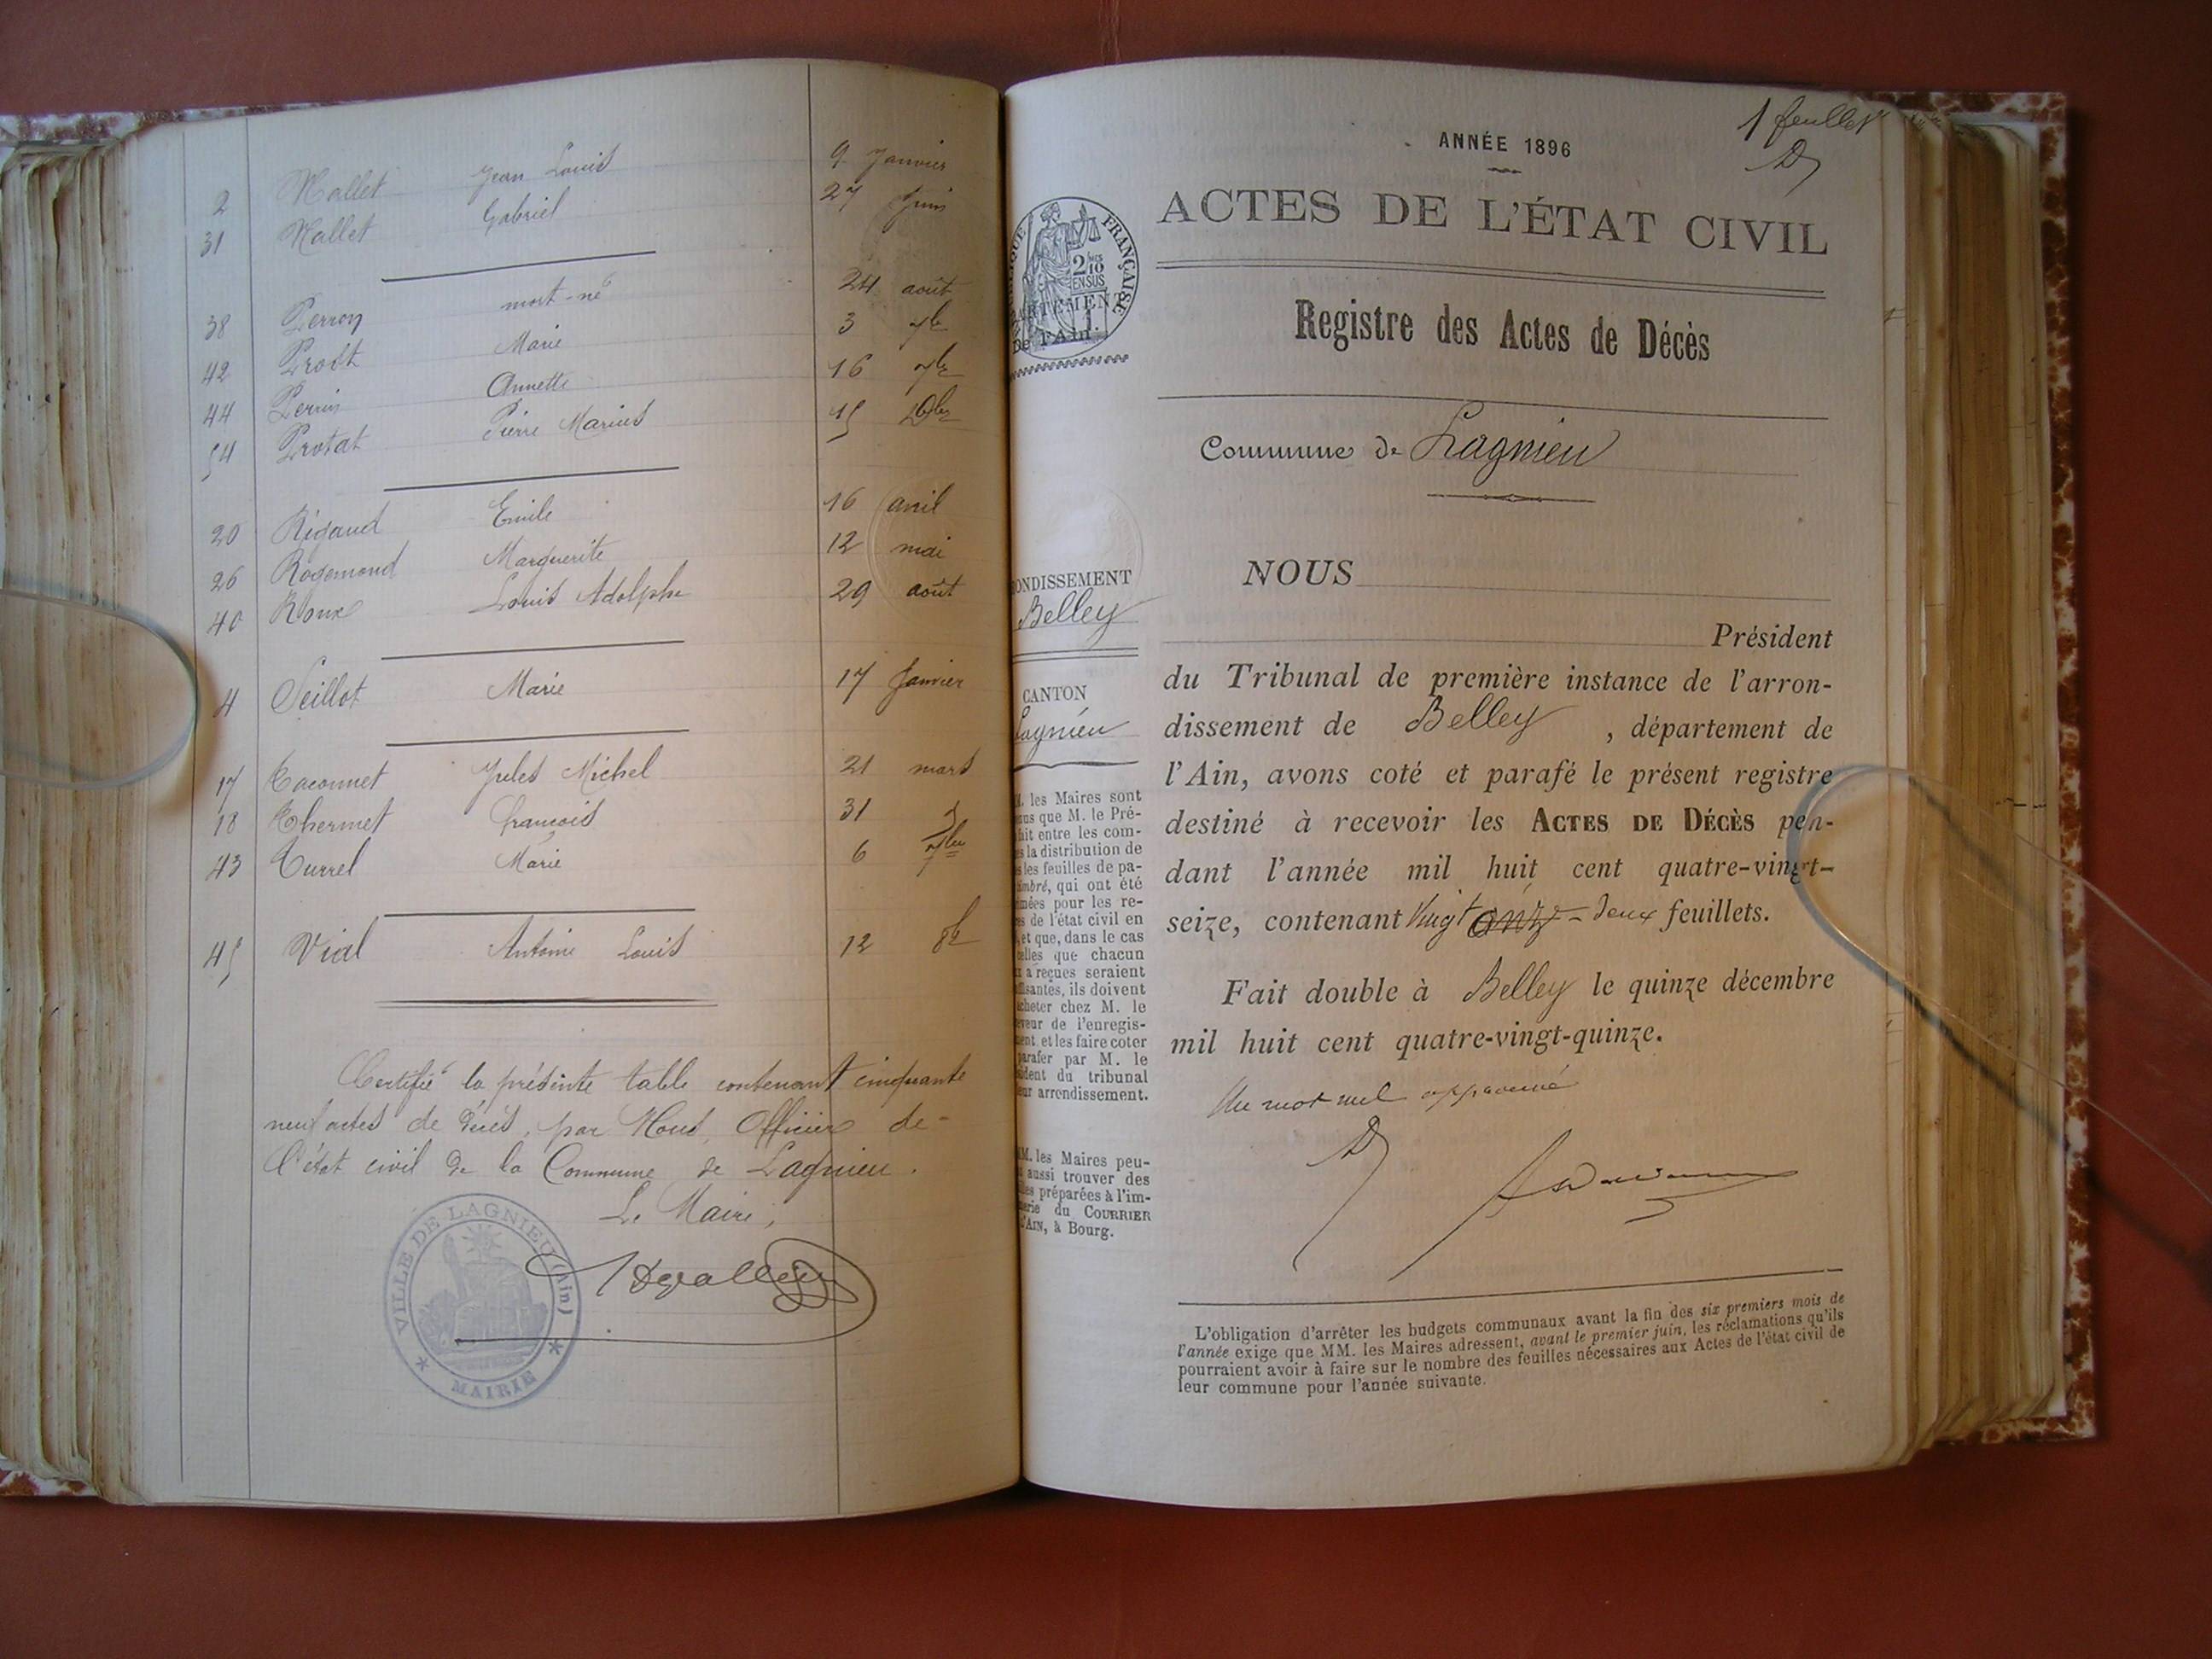 2 Mallet Jean Louis 9 Janvier
31 Mallet Gabriel 27 Juin
38 Perron mort-né 24 août
42 Prost Marie 3 7bre
44 Perrin Annette 16 7bre
54 Protat Pierre Marius 15 10bre
20 Rigaud Emile 16 avril
26 Rogemond Marguerite 12 mai
40 Roux Louis Adolphe 29 août
4 Seillot Marie 17 Janvier
17 Taconnet Jules Michel 21 mars
18 Thermet François 31
43 Turrel Marie 6 7bre
45 Vial Antoine Louis 12 8bre
Certifié la présente table contenant cinquante
neuf actes de décès, par Nous, Officier de
l'état civil de la Commune de Lagnieu.
Le Maire,
VILLE DE LAGNIEU (Ain)
MAIRIE
1 feuillet
ANNÉE 1896
ACTES DE L'ÉTAT CIVIL
FRANÇAISE
2 10
EN SUS
De l'Ain.
Registre des Actes de Décès
Commune de Lagnieu
ONDISSEMENT
Belley
CANTON
Lagnieu
NOUS
Président
du Tribunal de première instance de l'arron-
dissement de Belley, département de
l'Ain, avons coté et parafé le présent registre
destiné à recevoir les ACTES DE DÉCÈS pen-
dant l'année mil huit cent quatre-vingt-
seize, contenant Vingt onze - deux feuillets.
Fait double à Belley le quinze décembre
mil huit cent quatre-vingt-quinze.
Un mot nul approuvé
M. les Maires sont
us que M. le Pré-
fait entre les com-
s la distribution de
s les feuilles de pa-
imbré, qui ont été
mées pour les re-
s de l'état civil en
et que, dans le cas
elles que chacun
x a reçues seraient
ffisantes, ils doivent
cheter chez M. le
eveur de l'enregis-
ment et les faire coter
parafer par M. le
sident du tribunal
eur arrondissement.
MM. les Maires peu-
aussi trouver des
lles préparées à l'im-
merie du COURRIER
L'AIN, à Bourg.
L'obligation d'arrêter les budgets communaux avant la fin des six premiers mois de
l'année exige que MM. les Maires adressent, avant le premier juin, les réclamations qu'ils
pourraient avoir à faire sur le nombre des feuilles nécessaires aux Actes de l'état civil de
leur commune pour l'année suivante.